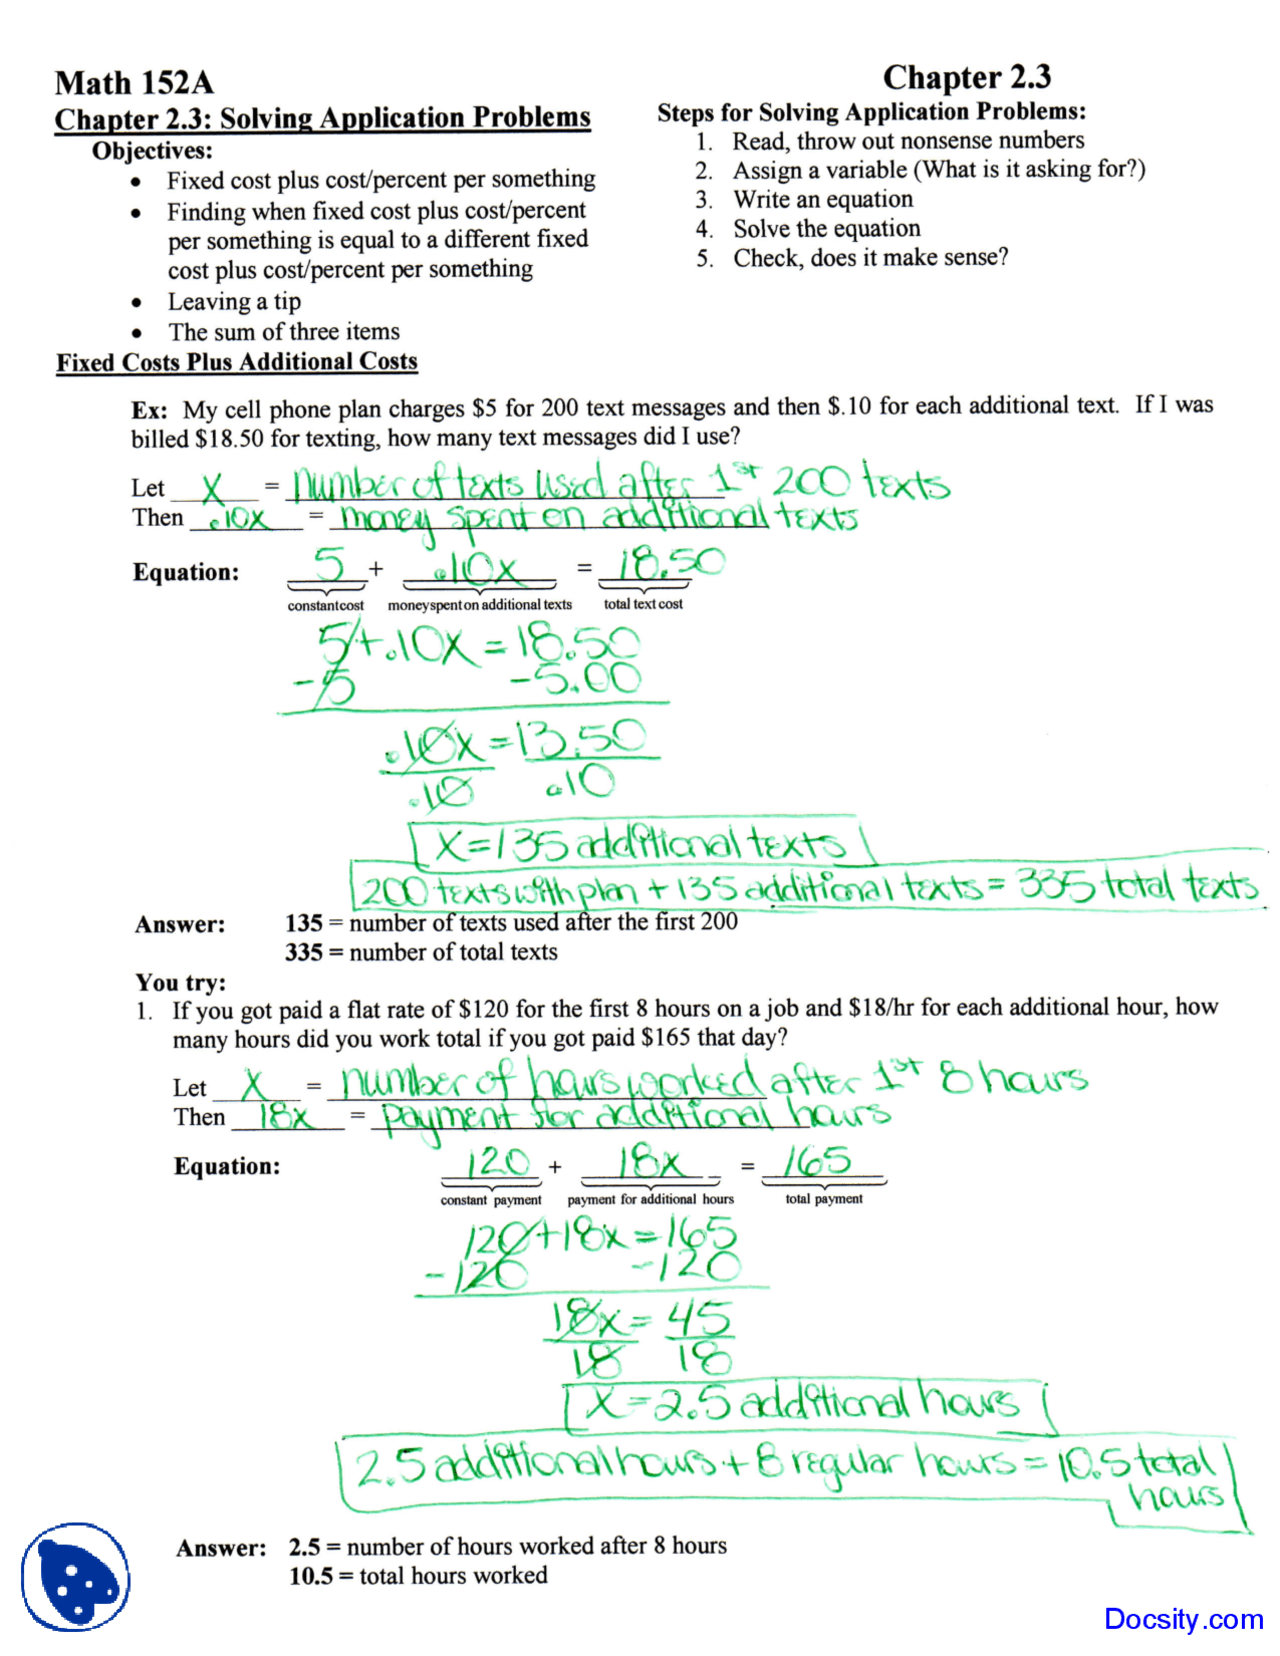 Math 152A
Chapter 2.3
Chapter 2.3: Solving Application Problems
Objectives:
• Fixed cost plus cost/percent per something
• Finding when fixed cost plus cost/percent
per something is equal to a different fixed
cost plus cost/percent per something
• Leaving a tip
• The sum of three items
Steps for Solving Application Problems:
1. Read, throw out nonsense numbers
2. Assign a variable (What is it asking for?)
3. Write an equation
4. Solve the equation
5. Check, does it make sense?
Fixed Costs Plus Additional Costs
Ex: My cell phone plan charges $5 for 200 text messages and then $.10 for each additional text. If I was
billed $18.50 for texting, how many text messages did I use?
Let x = number of texts used after 1st 200 texts
Then .10x = money spent on additional texts
Equation: 5 + .10x = 18.50
constant cost money spent on additional texts total text cost
5+.10x = 18.50
-5 -5.00
.10x = 13.50
.10 .10
x = 135 additional texts
200 texts with plan + 135 additional texts = 335 total texts
Answer: 135 = number of texts used after the first 200
335 = number of total texts
You try:
1. If you got paid a flat rate of $120 for the first 8 hours on a job and $18/hr for each additional hour, how
many hours did you work total if you got paid $165 that day?
Let x = number of hours worked after 1st 8 hours
Then 18x = payment for additional hours
Equation: 120 + 18x = 165
constant payment payment for additional hours total payment
120+18x = 165
-120 -120
18x = 45
18 18
x = 2.5 additional hours
2.5 additional hours + 8 regular hours = 10.5 total
hours
Answer: 2.5 = number of hours worked after 8 hours
10.5 = total hours worked
Docsity.com